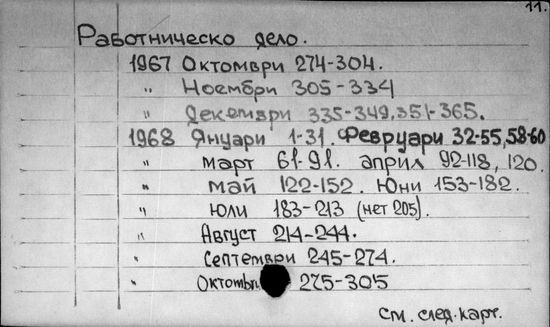 11.
Работническо дело.
1967 Октомври 274-304.
" Ноември 305-334
" Декември 335-349,351-365.
1968 Януари 1-31. Февруари 32-55,58-60
" март 61-91. април 92-118, 120.
" май 122-152. Юни 153-182.
" юли 183-213 (нет 205).
" Август 214-244.
" Септември 245-274.
" 275-305
См. след. карт.